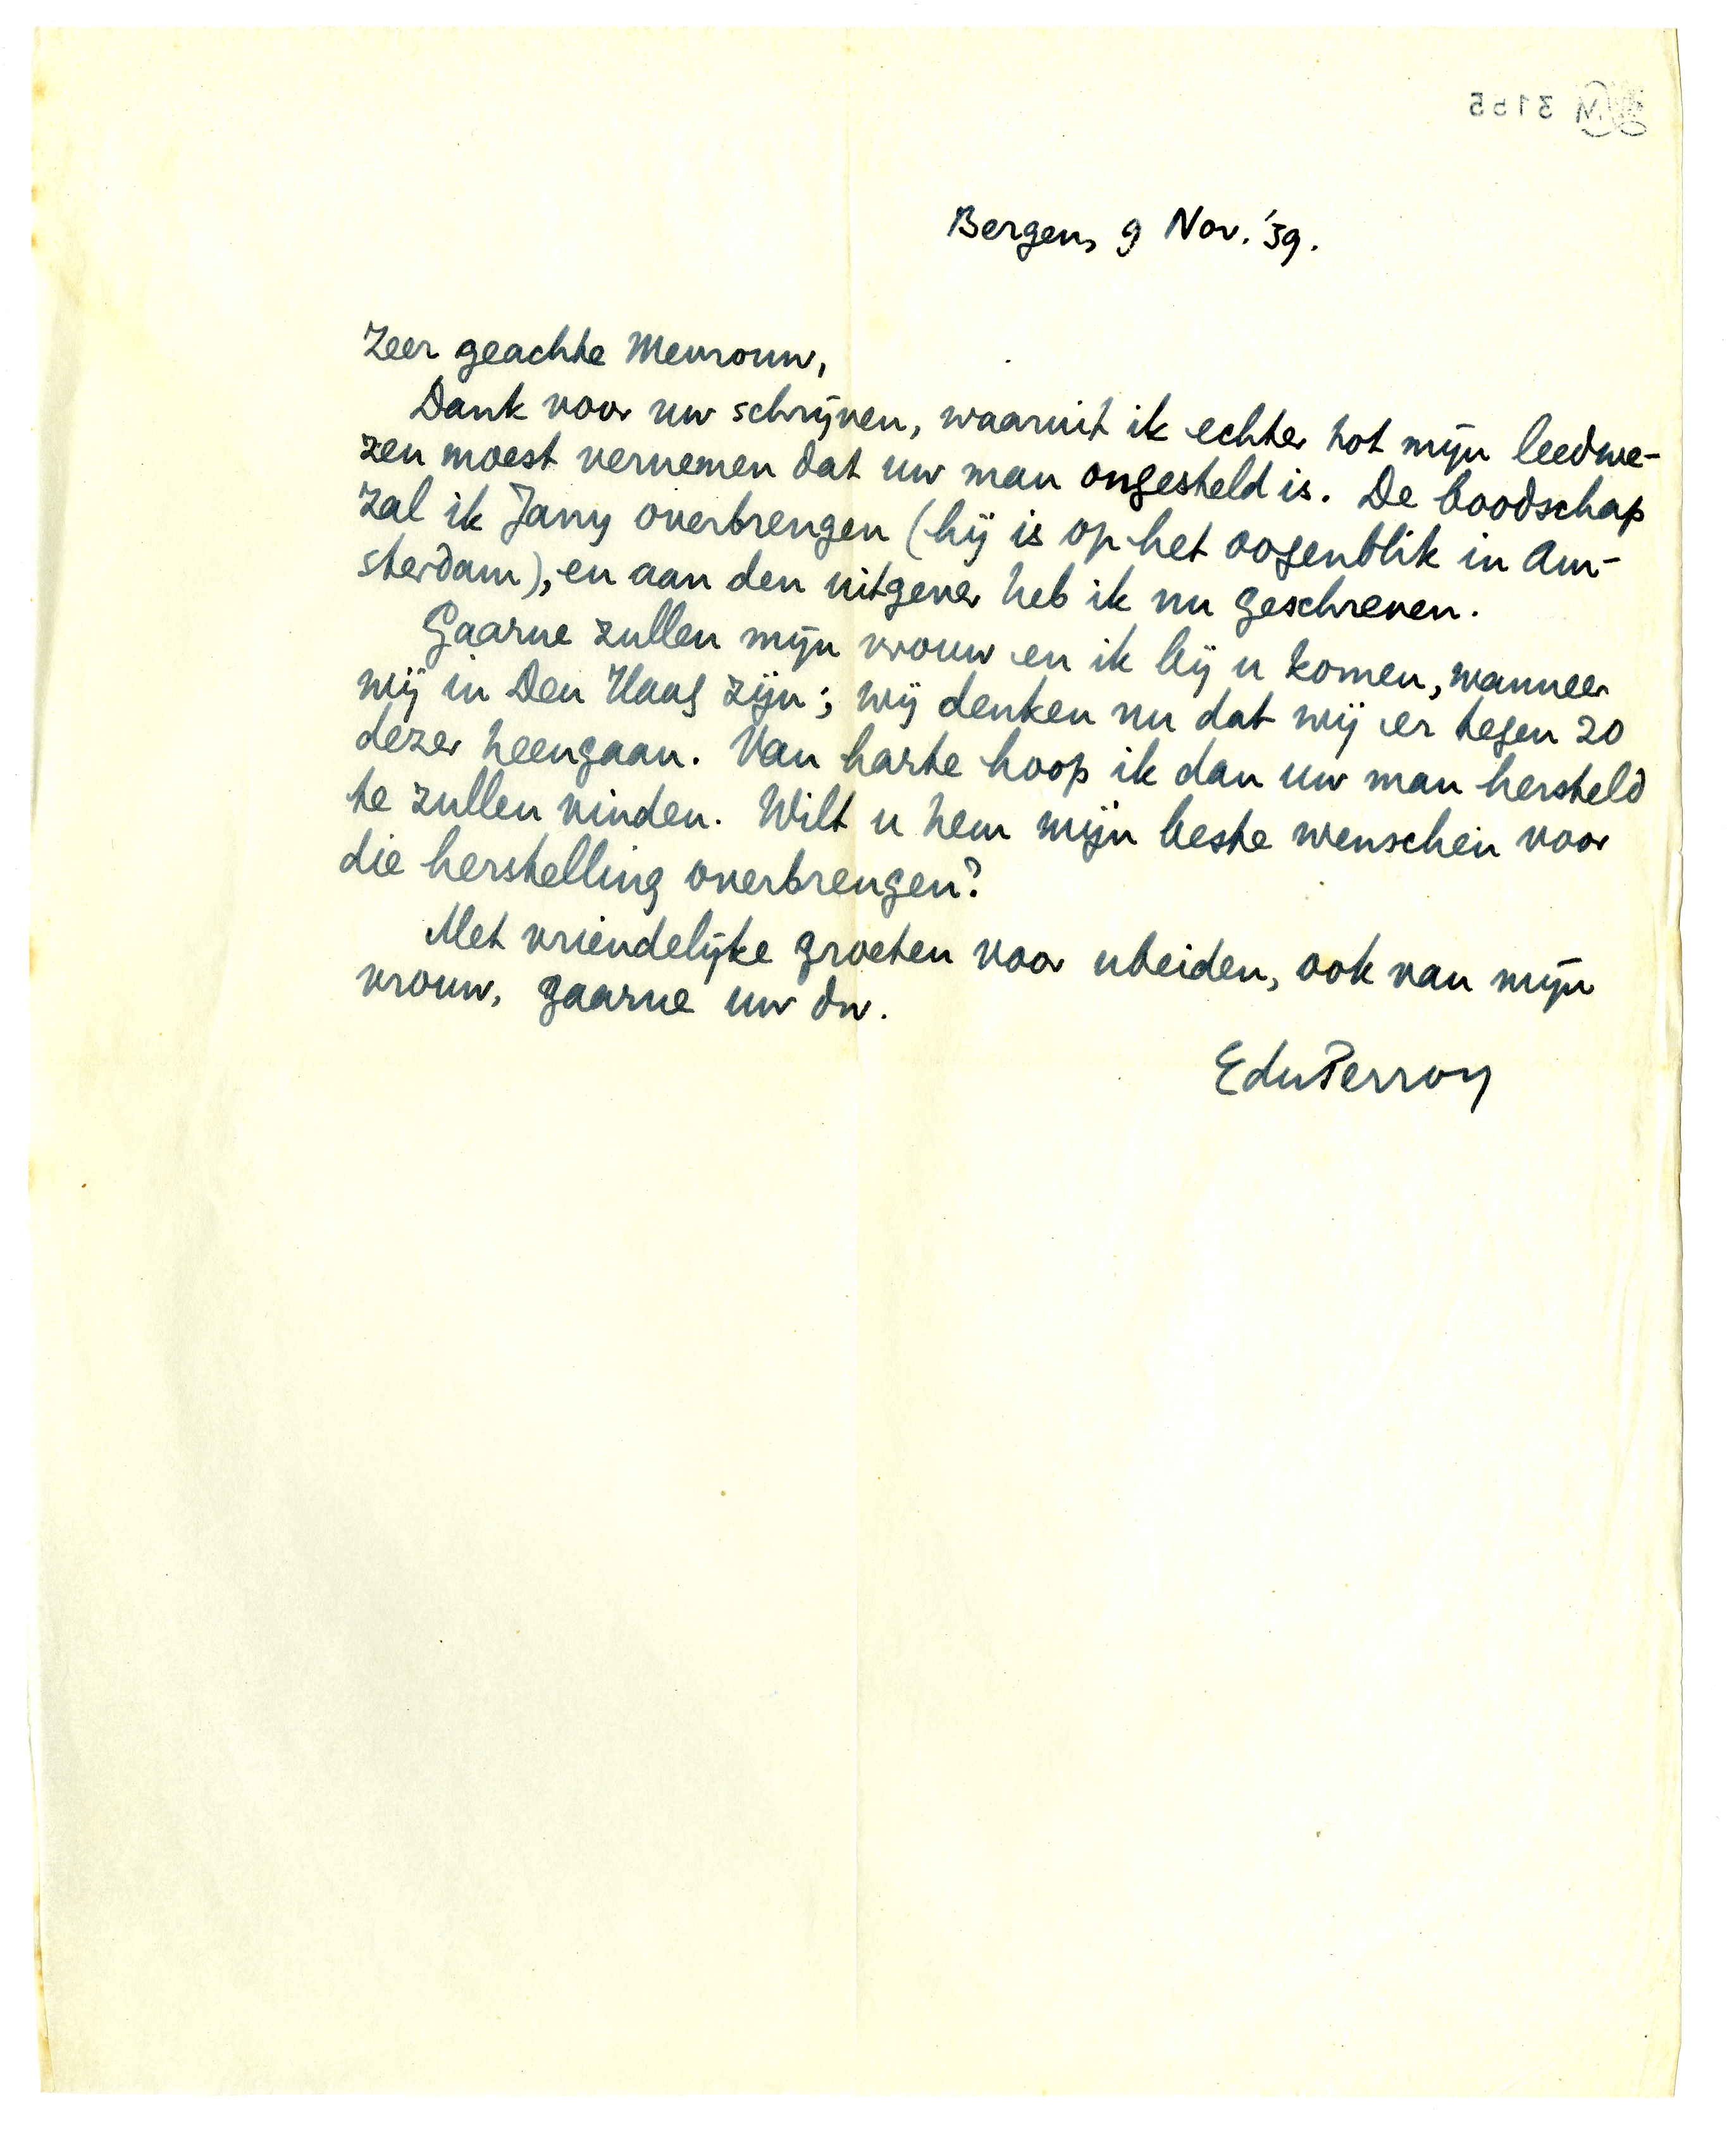 Bergen, 9 Nov. '39.
Zeer geachte Mevrouw,
Dank voor uw schrijven, waaruit ik echter tot mijn leedwe-
zen moest vernemen dat uw man ongesteld is. De boodschap
zal ik Jany overbrengen (hij is op het oogenblik in Am-
sterdam), en aan den uitgever heb ik nu geschreven.
Gaarne zullen mijn vrouw en ik bij u komen, wanneer
wij in Den Haag zijn; wij denken nu dat wij er tegen 20
dezer heengaan. Van harte hoop ik dan uw man hersteld
te zullen vinden. Wilt u hem mijn beste wenschen voor
die herstelling overbrengen?
Met vriendelijke groeten voor u beiden, ook van mijn
vrouw, gaarne uw dw.
EduPerron